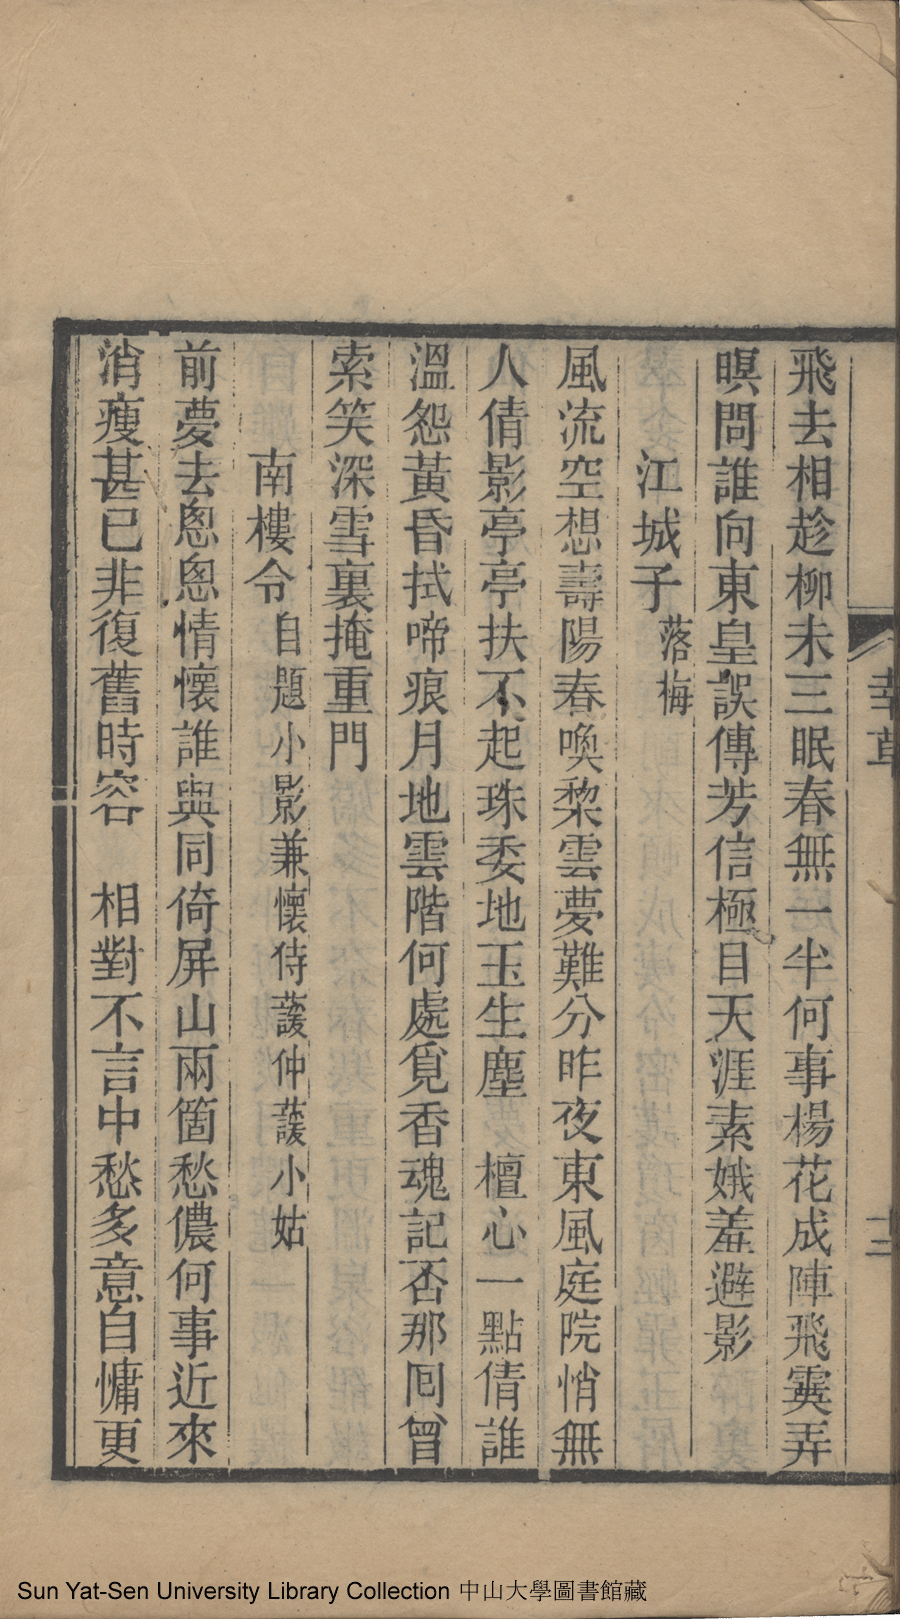 飛去相趁柳未三眠春無一半何事楊花成陣飛霙弄
暝問誰向東皇誤傳芳信極目天涯素娥羞避影
江城子 落梅
風流空想壽陽春喚棃雲夢難分昨夜東風庭院悄無
人倩影亭亭扶不起珠委地玉生塵 檀心一點倩誰
溫怨黃昏拭啼痕月地雲階何處覓香魂記否那囘曾
索笑深雪裏掩重門
南樓令 自題小影兼懷侍蘐仲蘐小姑
前夢去悤悤情懷誰與同倚屏山兩箇愁儂何事近來
消瘦甚已非復舊時容 相對不言中愁多意自慵更
Sun Yat-Sen University Library Collection 中山大學圖書館藏